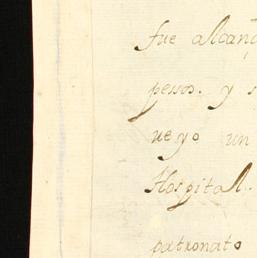 fue alcanç
pesos. y s
ueyo un
Hospital.
patronato